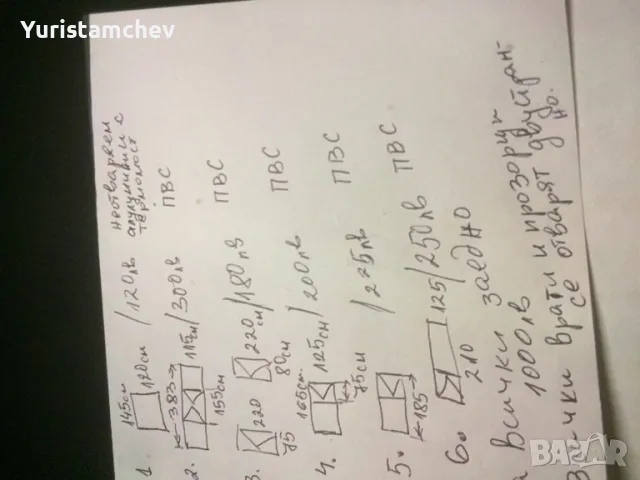 Yuristamchev
1 145см 120см /120лв неотваряем алуминий с термомост
2. ←383→ 115см /300лв ПВС
155см
3. 220 220см /180лв ПВС
75 80см
4. 166см. 125см /200лв ПВС
75см
5. /225лв ПВС
←185→
6. 125/250лв ПВС
210
Всички заедно
1000лв
врати и прозорци
се отварят двустран-
но.
BAZAR